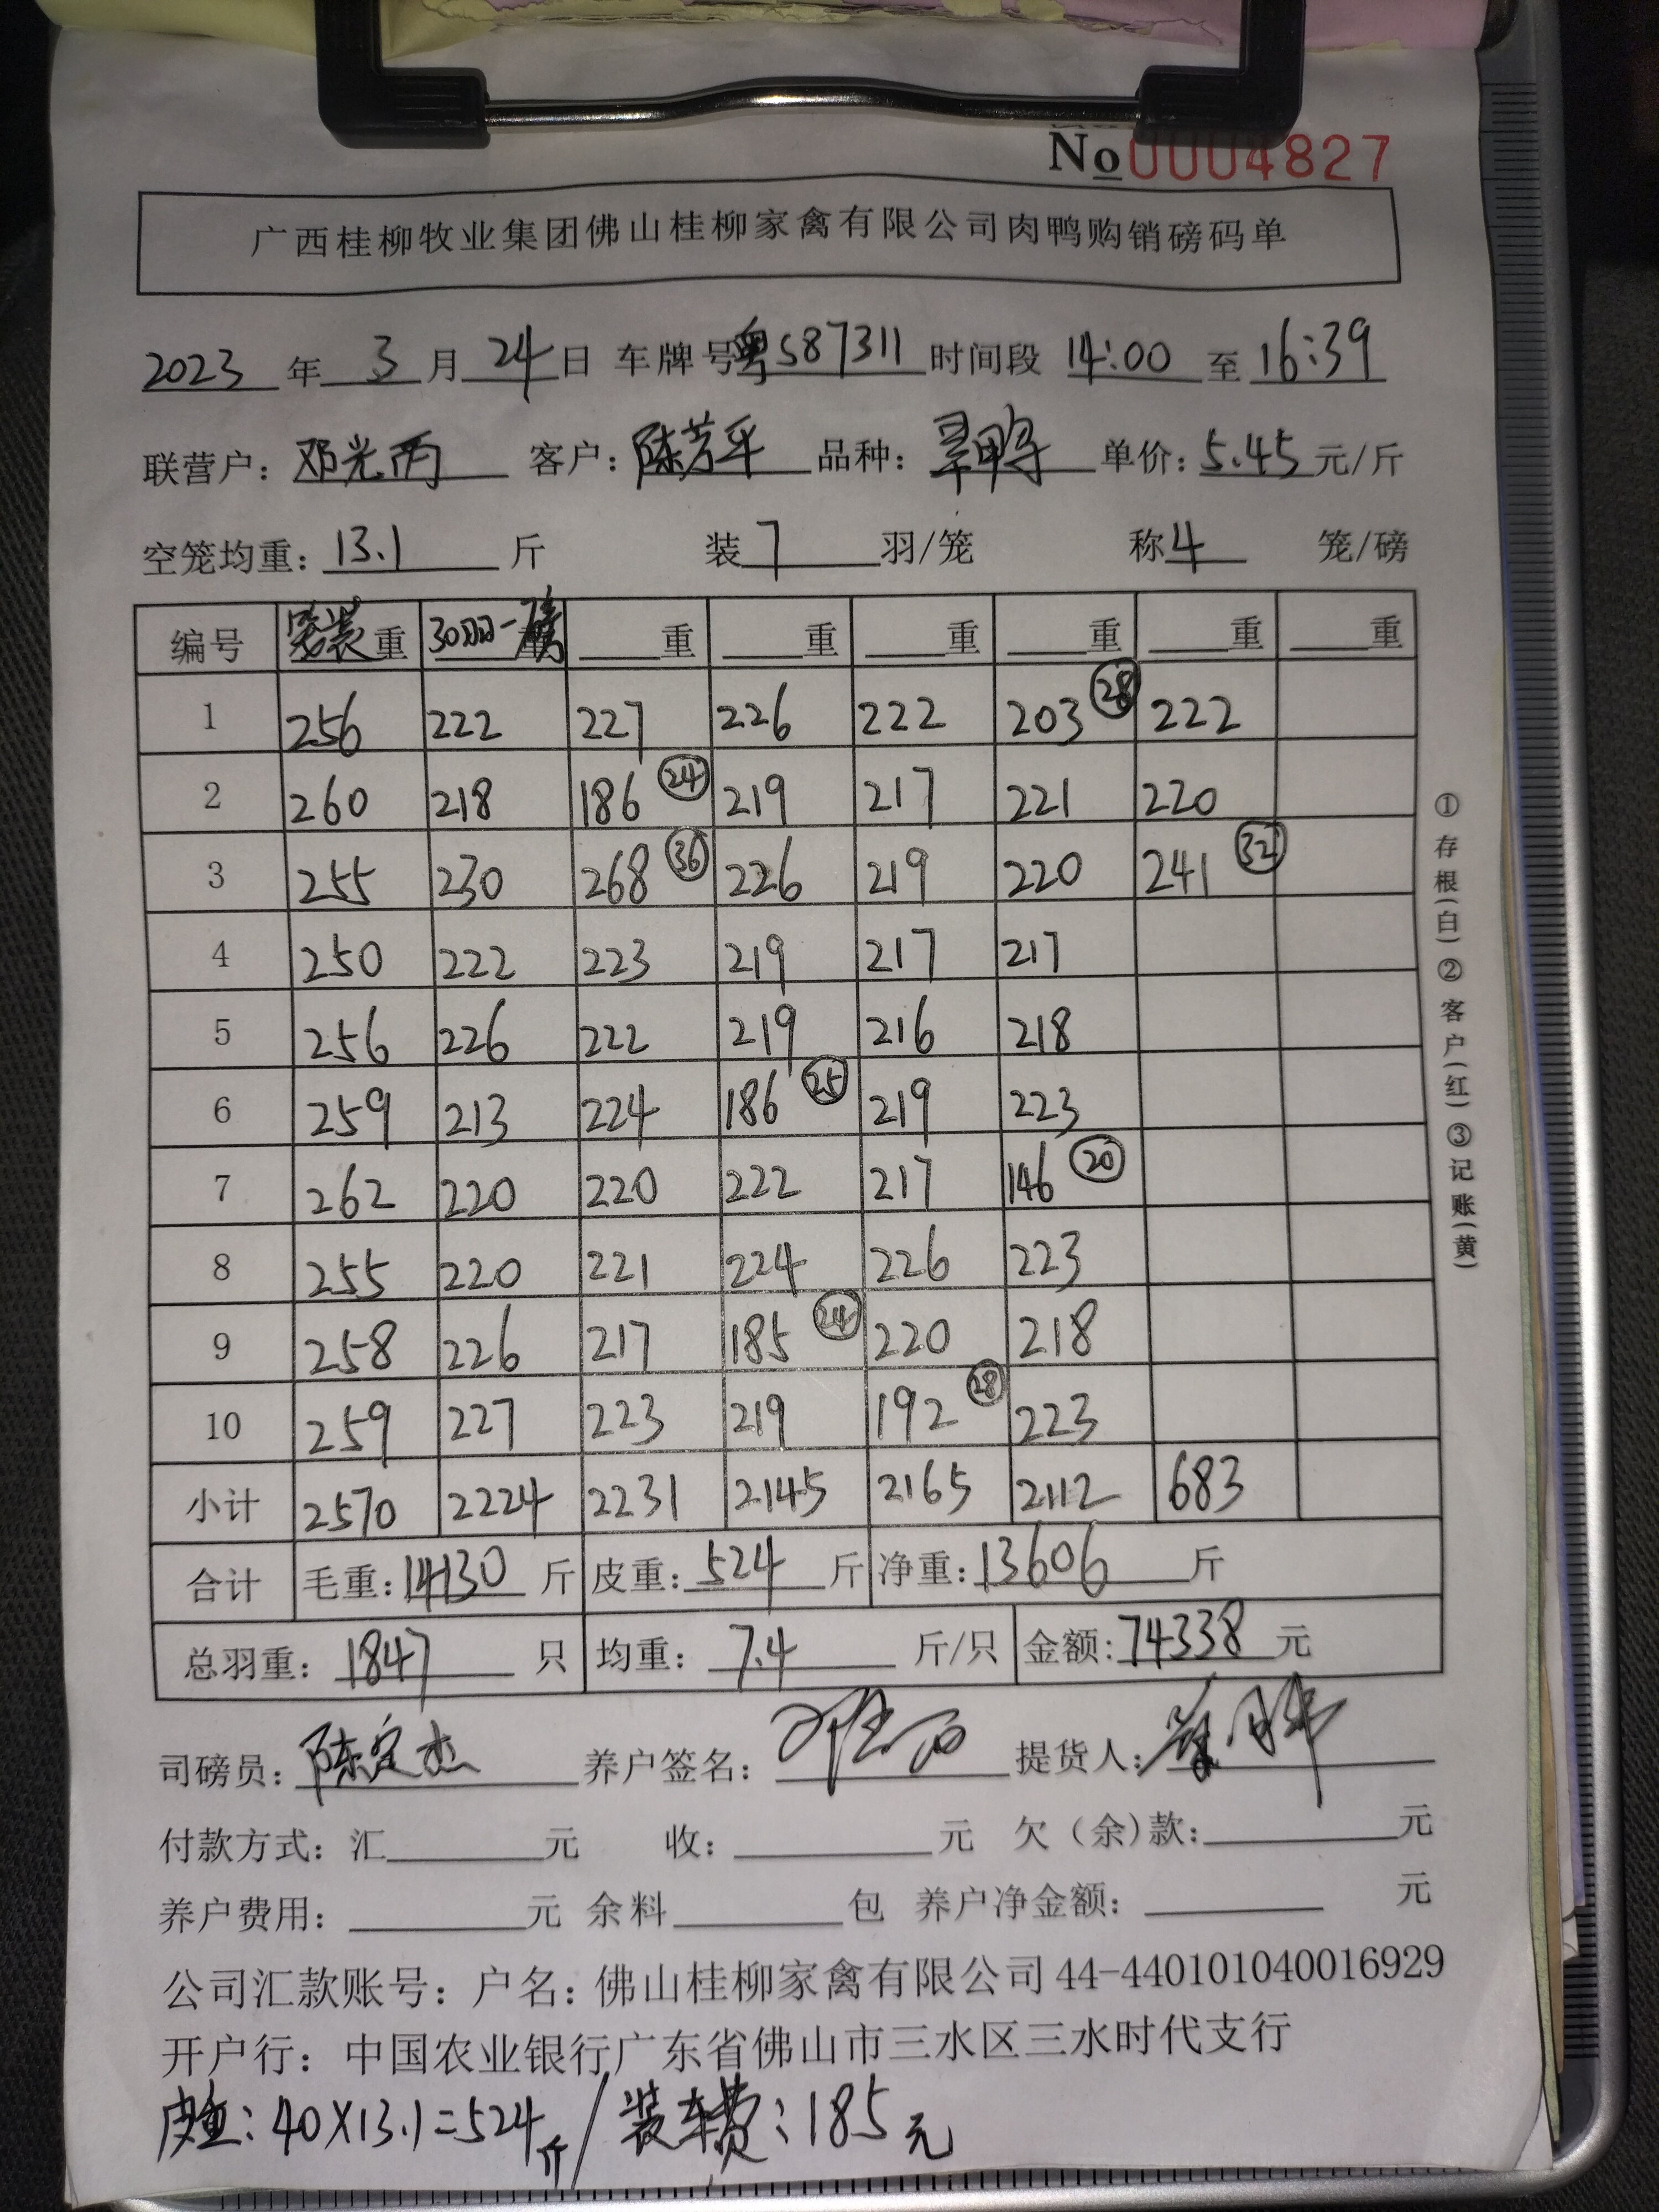 No 0004827
广西桂柳牧业集团佛山桂柳家禽有限公司肉鸭购销磅码单
2023 年 3 月 24 日 车牌号 粤S87311 时间段 14:00 至 16:39
联营户: 邓光丙 客户: 陈芳平 品种: 旱鸭 单价: 5.45 元/斤
空笼均重: 13.1 斤 装 7 羽/笼 称 4 笼/磅
编号 笼装重 30羽一磅重 重 重 重 重 重 重
1 256 222 227 226 222 203 ㉘ 222
2 260 218 186 ㉔ 219 217 221 220
3 255 230 268 ㊱ 226 219 220 241 ㉜
4 250 222 223 219 217 217
5 256 226 222 219 216 218
6 259 213 224 186 ㉕ 219 223
7 262 220 220 222 217 146 ⑳
8 255 220 221 224 226 223
9 258 226 217 185 ㉔ 220 218
10 259 227 223 219 192 ㉘ 223
小计 2570 2224 2231 2145 2165 2112 683
合计 毛重: 14130 斤 皮重: 524 斤 净重: 13606 斤
总羽重: 1847 只 均重: 7.4 斤/只 金额: 74338 元
司磅员: 陈定杰 养户签名: 提货人:
付款方式: 汇 元 收: 元 欠(余)款: 元
养户费用: 元 余料 包 养户净金额: 元
公司汇款账号: 户名: 佛山桂柳家禽有限公司 44-440101040016929
开户行: 中国农业银行广东省佛山市三水区三水时代支行
皮重: 40X13.1=524斤/装车费: 185元
①存根(白)②客户(红)③记账(黄)